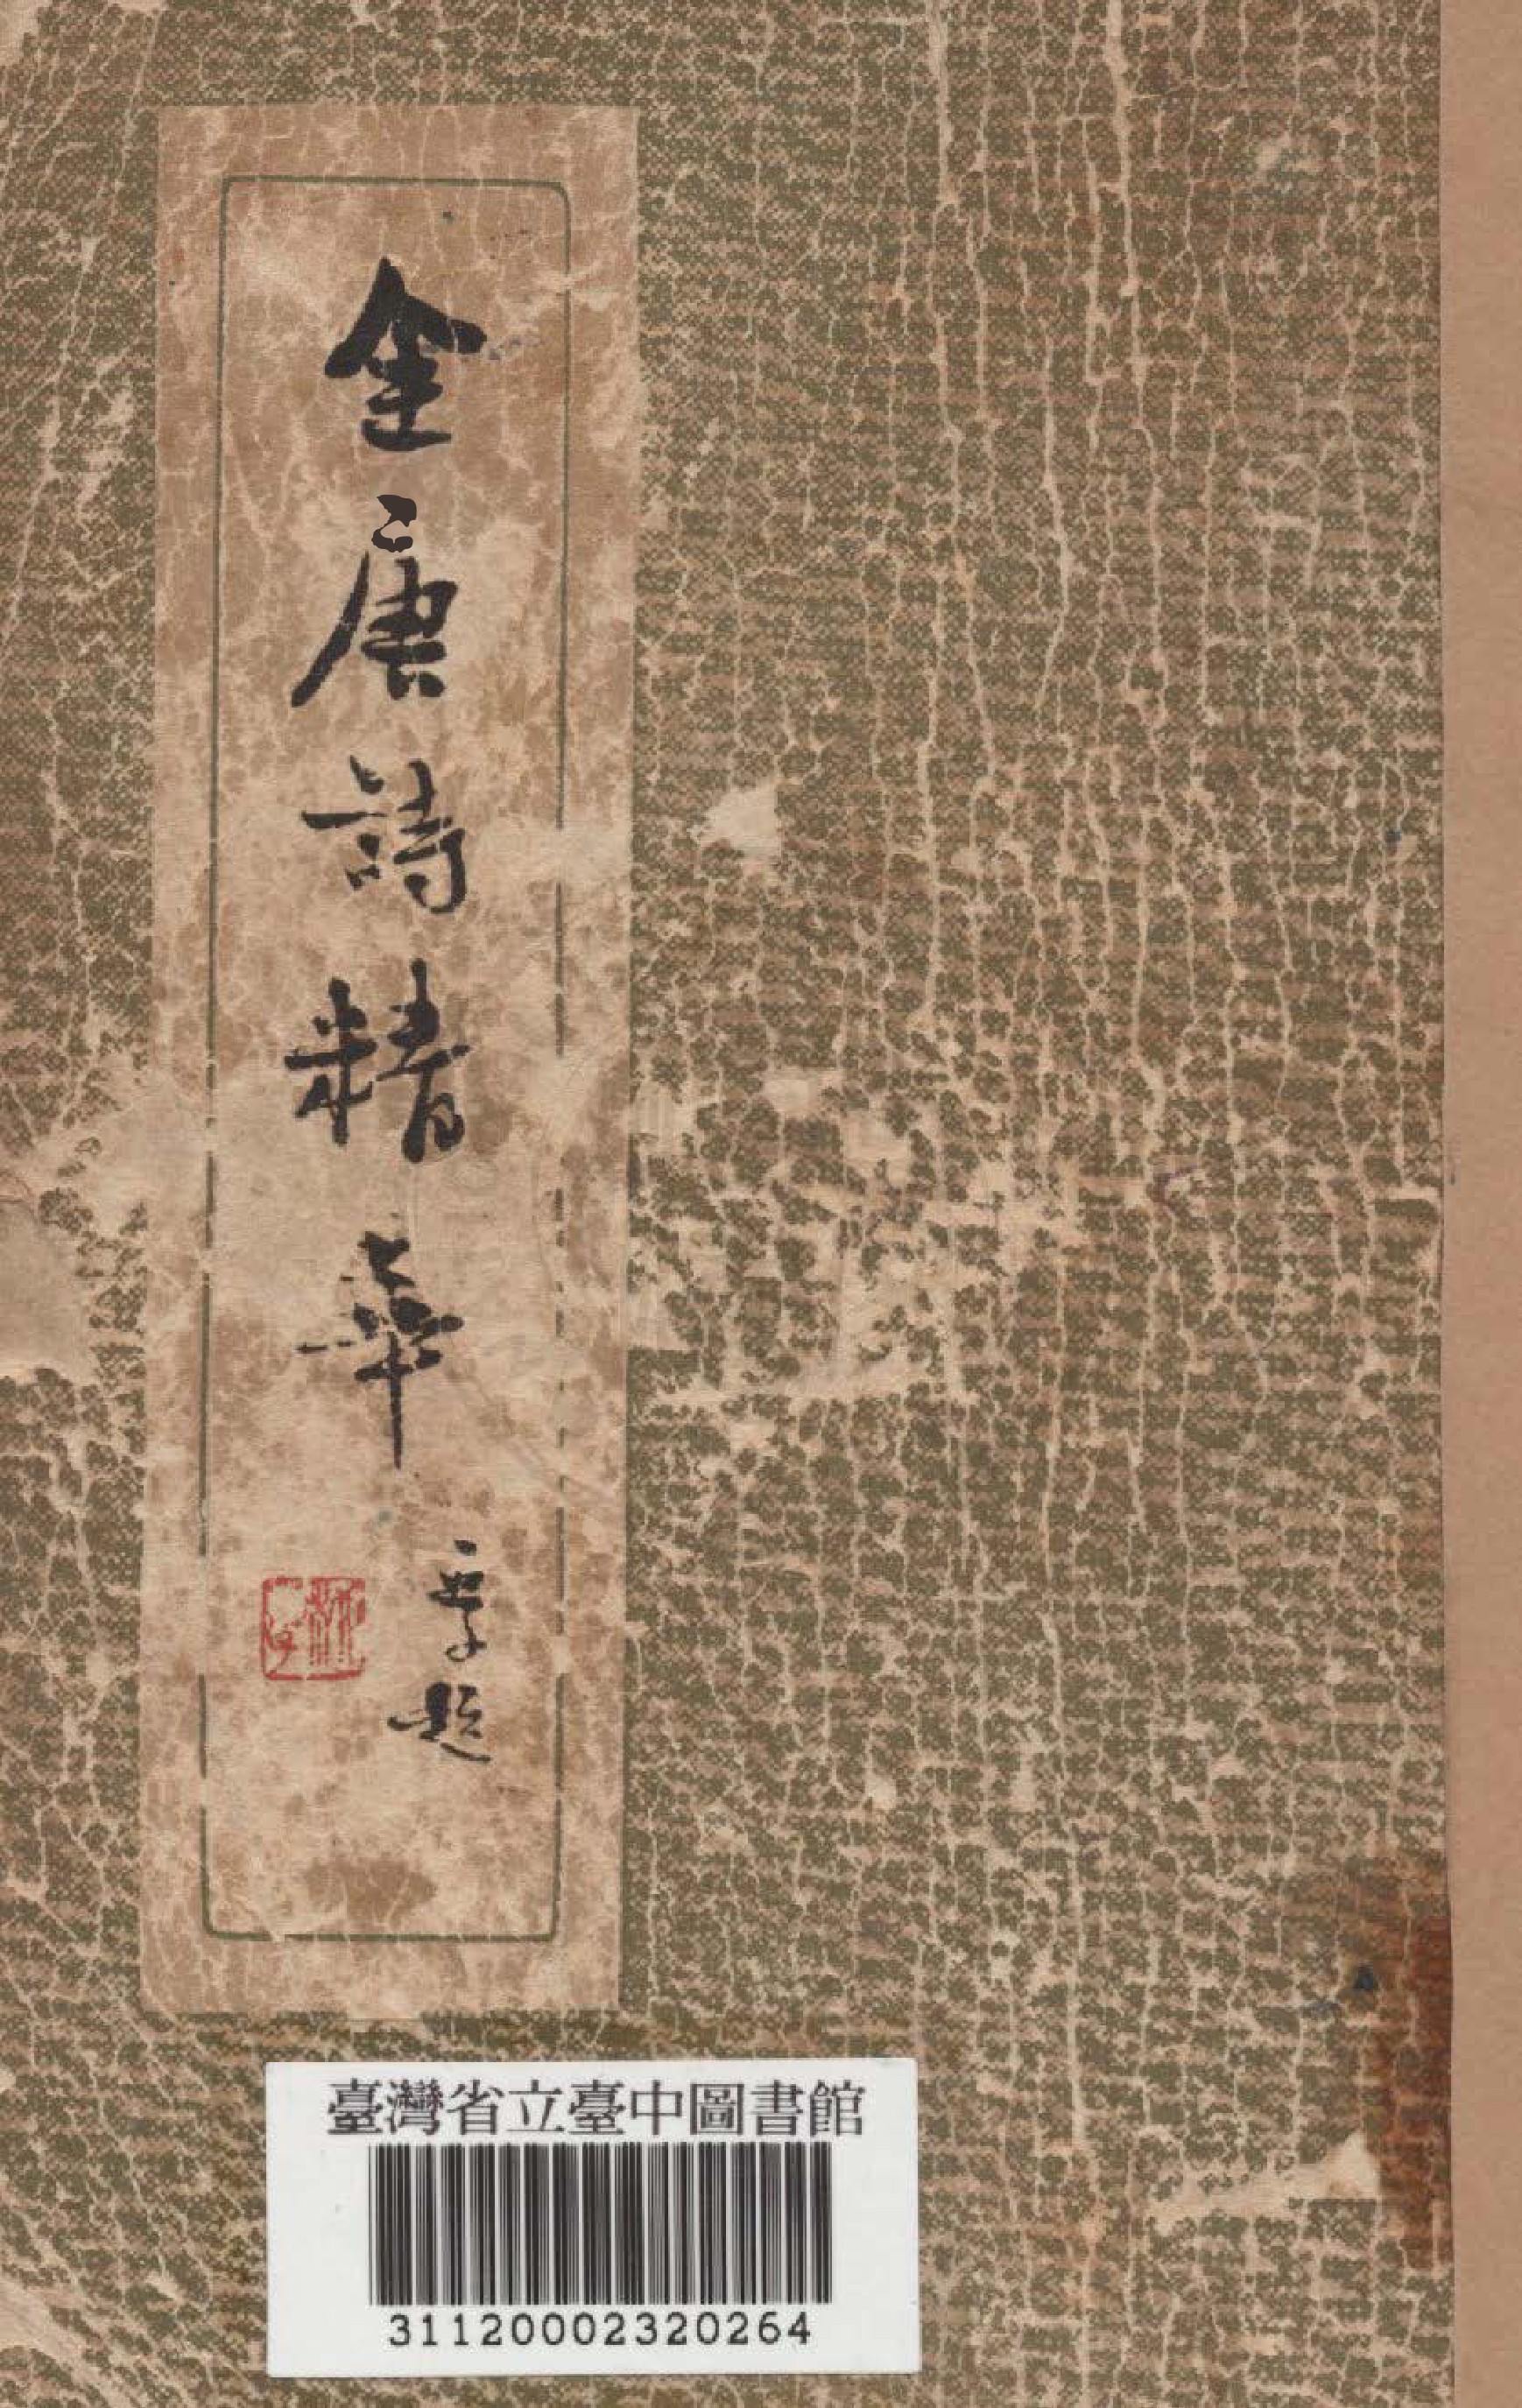 全唐詩精華
亞子題
臺灣省立臺中圖書館
31120002320264